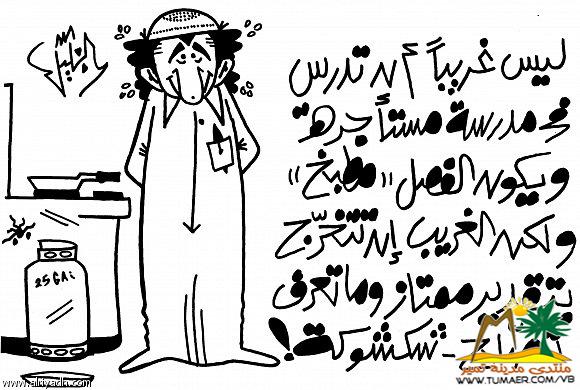 ليس غريباً أن تدرس
في مدرسة مستأجرة
ويكون الفصل «مطبخ»
ولكن الغريب إن تتخرّج
بتقدير ممتاز وما تعرف
شكشوكة!
25 GAL
www.alriyadh.com
منتدى مدينة تمير
WWW.TUMAER.COM/VB